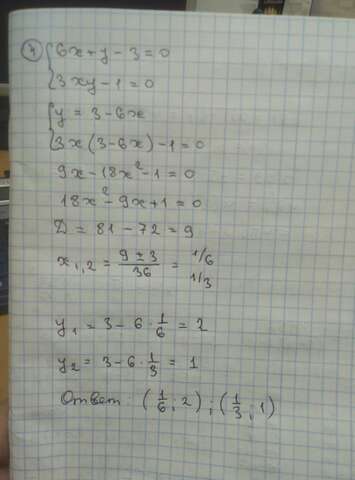 4) { 6x + y - 3 = 0
3xy - 1 = 0
{ y = 3 - 6x
3x(3 - 6x) - 1 = 0
9x - 18x² - 1 = 0
18x² - 9x + 1 = 0
D = 81 - 72 = 9
x₁,₂ = (9 ± 3)/36 = 1/6
1/3
y₁ = 3 - 6 · 1/6 = 2
y₂ = 3 - 6 · 1/3 = 1
Ответ: (1/6; 2) ; (1/3; 1)